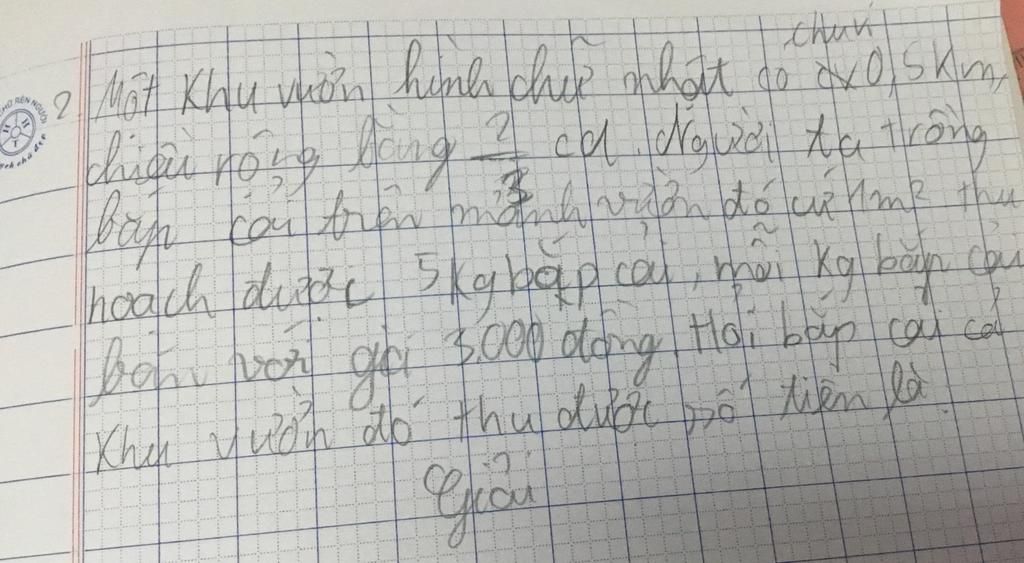 chun
2 Một Khu vườn hình chữ nhất do dx0,5Km,
chiều rộng bằng 2/3 cd. Người ta trồng
bắp cải trên mảnh vườn đó cứ 1m² thu
hoạch được 5kg bắp cải, mỗi kg bắp cải
bán với giá 3.000 đồng. Hỏi bắp cải cả
khu vườn đó thu được số tiền là
Giải